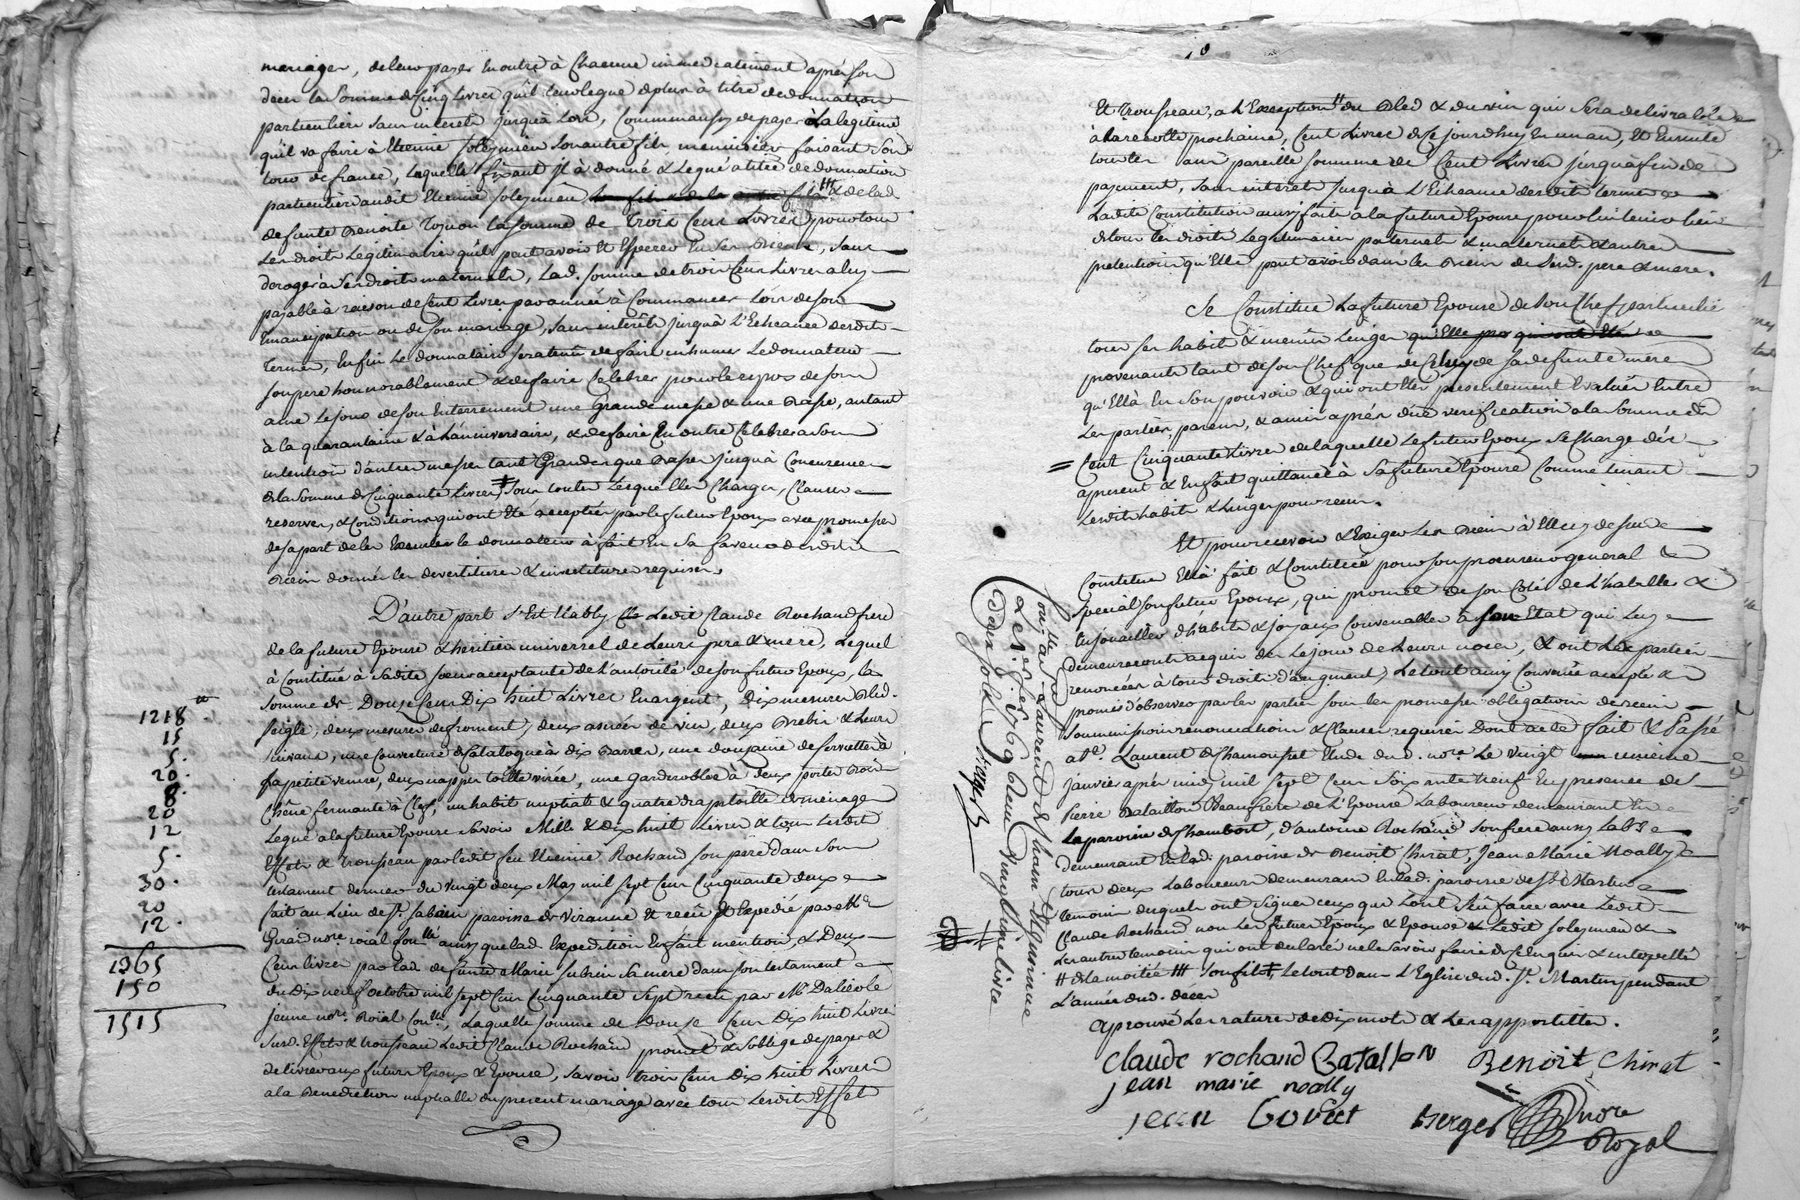 mariager, de leur payer en outre à chacune immediatement aprés son
deces la somme de cinq livres qu'il leur legue de plus à titre de donnation
particuliere sans interets jusqu'a lors, commansera de payer la legitime
qu'il va faire à Etienne Soleymieu son autre fils, menuisier faisant son
tour de france, laquelle fixant il à donné & legué a titre de donnation
particuliere audit Etienne Soleymieu & de lad
defunte Benoite la somme de trois cens livres pour tous
les droits legitimaires qu'il peut avoir et esperer en ses biens, sans
deroger à ses droits maternels, lad. somme de trois cens livres a luy
payable à raison de cent livres par année à commancer lors de son
emancipation ou de son mariage, sans interêts jusqu'à l'echeance desdits
termes, enfin le donnataire sera tenu de faire inhumer le donnateur
son pere honnorablement & de faire celebrer pour le repos de son
ame le jour de son enterrement une grande messe & une basse, autant
à la quarantaine & à l'anniversaire, & de faire en outre celebrer a son
intention d'autres messes tant grandes que basses jusqu'à concurence
de la somme de cinquante livres sous toutes lesquelles charges, clauses
reserves, & conditions qui ont été acceptées par le futur epoux avec promesse
de sa part de les executer le donnateur à fait en sa faveur desdits
biens donnés les devestiture & investiture requises
D'autre part s'est etably ledit Claude Rochand frere
de la future epouse & héritier universel de leurs pere & mere, lequel
à constitué à sadite soeur acceptante de l'autorité de son futur epoux, la
somme de douze cens dix huit livres en argent, dix mesures bled
seigle, deux mesures de froment, deux asnées de vin, deux brebis & leurs
suivans, une couverture de Catalogne à dix barres, une douzaine de serviettes à
la petite venise, deux nappes toille virée, une garderobbe à deux portes bois
chêne fermante à clef, un habit nuptial & quatre draps toille de menage
legué a la future epouse savoir mille & dix huit livres & tous lesdits
effets & trousseau par ledit feu Etienne Rochand son pere dans son
testament dernier du vingt deux may mil sept cens cinquante deux
fait au lieu de St. Sabin paroisse de Viranne et receu et expedié par Me
Girard nore. roial ainsy que lad. expedition en fait mention, & deux
cens livres par lad. defunte Marie sa mere dans son testament
du dix neuf octobre mil sept cens cinquante sept receu par Me
jeune nore. roial, laquelle somme de douze cens dix huit livres
susd. effets & trousseau ledit Claude Rochand promet & s'oblige de payer &
delivrer aux futurs epoux & epouse, savoir trois cens dix huit livres
a la benediction nuptialle du present mariage avec tous lesdits effets
1218
15
5.
20.
8.
20
12
5.
30.
20
12.
1365
150
1515
et trousseau, à l'exception du bled & du vin qui sera delivré
à la recolte prochaine, cent livres de ce jourdhuy en un an, et ensuite
tous les ans pareille somme de cent livres jusqu'a fin de
payement, sans interets jusqu'à l'echeance desdits termes
Ladite constitution ainsy faite à la future epouse pour luy tenir lieu
de tous les droits legitimaires paternels & maternels & autres
pretentions qu'elle peut avoir dans les biens de sesd. pere & mere.
Se constitue la future epouse de son chef particulier
tous ses habits & menus linges
provenants tant de son chef que de celuy de sa defunte mere
qu'ellà en son pouvoir & qui ont eté presentement evalués entre
les parties, parens, & amis aprés dûe verification a la somme de
cent cinquante livres de laquelle le futur epoux se charge dés
a present & en fait quittance à sa future epouse comme tenant
lesdits habits & linges pour receus.
Et pour recevoir & exiger les biens à elle
constitue ellà fait & constitué pour son procureur general &
special son futur epoux, qui promet de son coté de l'habiller &
enjoailler d'habits & joyaux convenables à son etat qui luy
demeureront acquis dés le jour de leurs noces, & ont les parties
renoncées à tous droits d'augment, le tout ainsy convenu accepté &
promis d'observer par les parties sous les promesses obligations de biens
soumissions renonciations & clauses requises dont acte fait & passé
Laurent de Chamousset etude dud. nore. le vingt unieme
janvier aprés midy mil sept cens soixante neuf en presence de
Pierre Bataillon beaufrere de l'epouse laboureur demeurant en
la paroisse de Chambost, d'antoine Rochand son frere aussy labr.
demeurant en lad. paroisse de Benoit Chirat, Jean Marie Noally
tous deux laboureurs demeurans en lad. paroisse de St. Martin
temoins desquels ont signer ceux qui l'ont sçû faire avec ledit
Claude Rochand non les futurs epoux & epouse & ledit Soleymieu &
les autres temoins qui ont declaré ne le savoir faire de ce enquis & interpellé
# de la moitié ### son fils ‡ le tout dans l'Eglise dud. St. Martin pendant
l'année dud. décés
aprouvé les rature de dix mots & les appostilles.
claude rochand Batallon Benoit Chirat
jean marie noally
jean Gouttet Berger nore
Royal
Conllé. à St. Laurent de Cham. le
1769 Reçu vingt une livre
douze sols
Berger